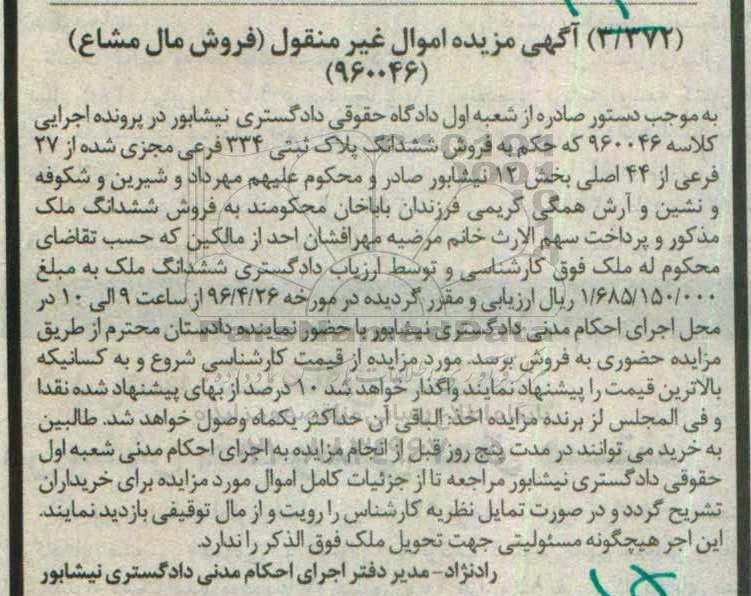 (۳/۳۷۲) آگهی مزیده اموال غیر منقول (فروش مال مشاع)
(۹۶۰۰۴۶)
به موجب دستور صادره از شعبه اول دادگاه حقوقی دادگستری نیشابور در پرونده اجرایی
کلاسه ۹۶۰۰۴۶ که حکم به فروش ششدانگ پلاک ثبتی ۳۳۴ فرعی مجزی شده از ۲۷
فرعی از ۴۴ اصلی بخش ۱۲ نیشابور صادر و محکوم علیهم مهرداد و شیرین و شکوفه
و نشین و آرش همگی کریمی فرزندان باباخان محکومند به فروش ششدانگ ملک
مذکور و پرداخت سهم الارث خانم مرضیه مهرافشان احد از مالکین که حسب تقاضای
محکوم له ملک فوق کارشناسی و توسط ارزیاب دادگستری ششدانگ ملک به مبلغ
۱/۶۸۵/۱۵۰/۰۰۰ ریال ارزیابی و مقرر گردیده در مورخه ۹۶/۴/۲۶ از ساعت ۹ الی ۱۰ در
محل اجرای احکام مدنی دادگستری نیشابور با حضور نماینده دادستان محترم از طریق
مزایده حضوری به فروش برسد. مورد مزایده از قیمت کارشناسی شروع و به کسانیکه
بالاترین قیمت را پیشنهاد نمایند واگذار خواهد شد ۱۰ درصد از بهای پیشنهاد شده نقدا
و فی المجلس لز برنده مزایده اخذ. الباقی آن حداکثر یکماه وصول خواهد شد. طالبین
به خرید می توانند در مدت پنج روز قبل از انجام مزایده به اجرای احکام مدنی شعبه اول
حقوقی دادگستری نیشابور مراجعه تا از جزئیات کامل اموال مورد مزایده برای خریداران
تشریح گردد و در صورت تمایل نظریه کارشناس را رویت و از مال توقیفی بازدید نمایند.
این اجر هیچگونه مسئولیتی جهت تحویل ملک فوق الذکر را ندارد.
رادنژاد- مدیر دفتر اجرای احکام مدنی دادگستری نیشابور